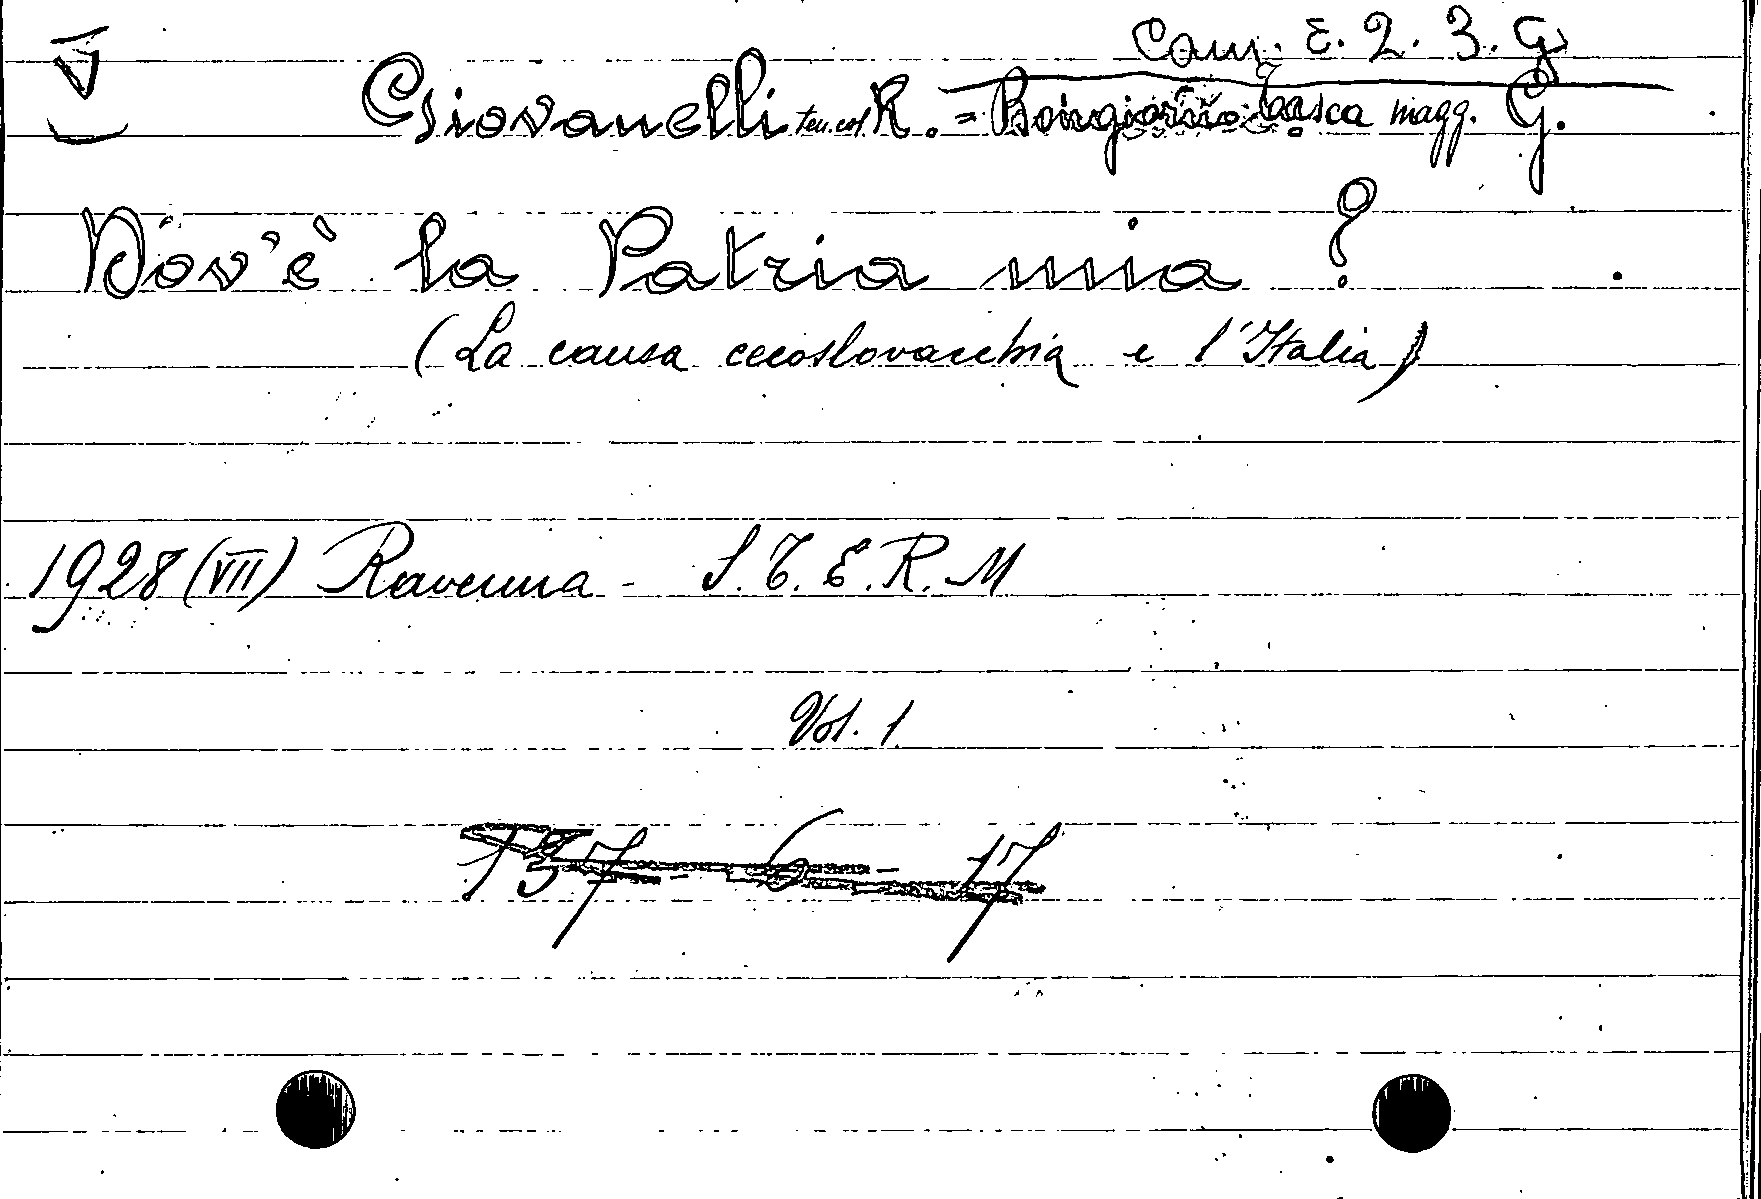 V Cam. E. 2. 3. G
Giovanelli ten. col. R. = Bongiorno Tasca magg. G.
Dov'è la Patria mia ?
(La causa cecoslovacchia e l'Italia)
1928 (VII) Ravenna - S.T.E.R.M
Vol. 1
137 - 6 - 17